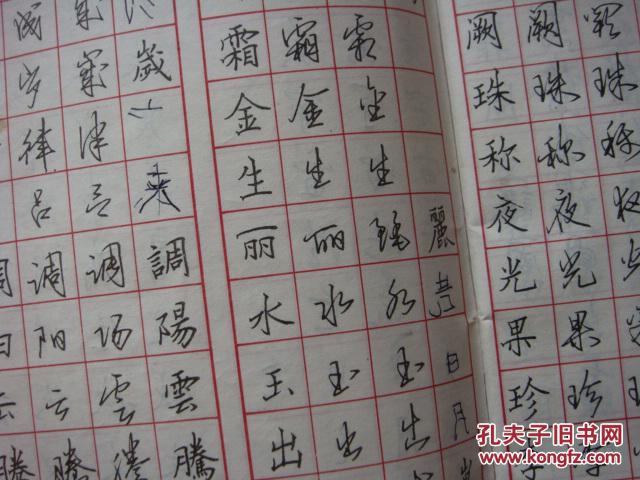 岁 歲 歲
律 律
吕 吕
调 调 调 調
阳 阳 陽
云 云 雲 雲
腾 腾 腾 騰
霜 霜 霜
金 金 金
生 生 生
丽 丽 麗 麗
水 水 水
玉 玉 玉 日
出 出 出 月
阙 阙 阙
珠 珠 珠
称 称 称
夜 夜 夜
光 光 光
果 果
珍 珍
孔夫子旧书网
KONGFZ.COM